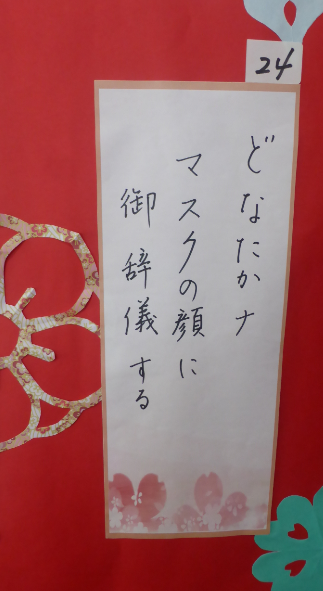 24
どなたかナ
マスクの顔に
御辞儀する